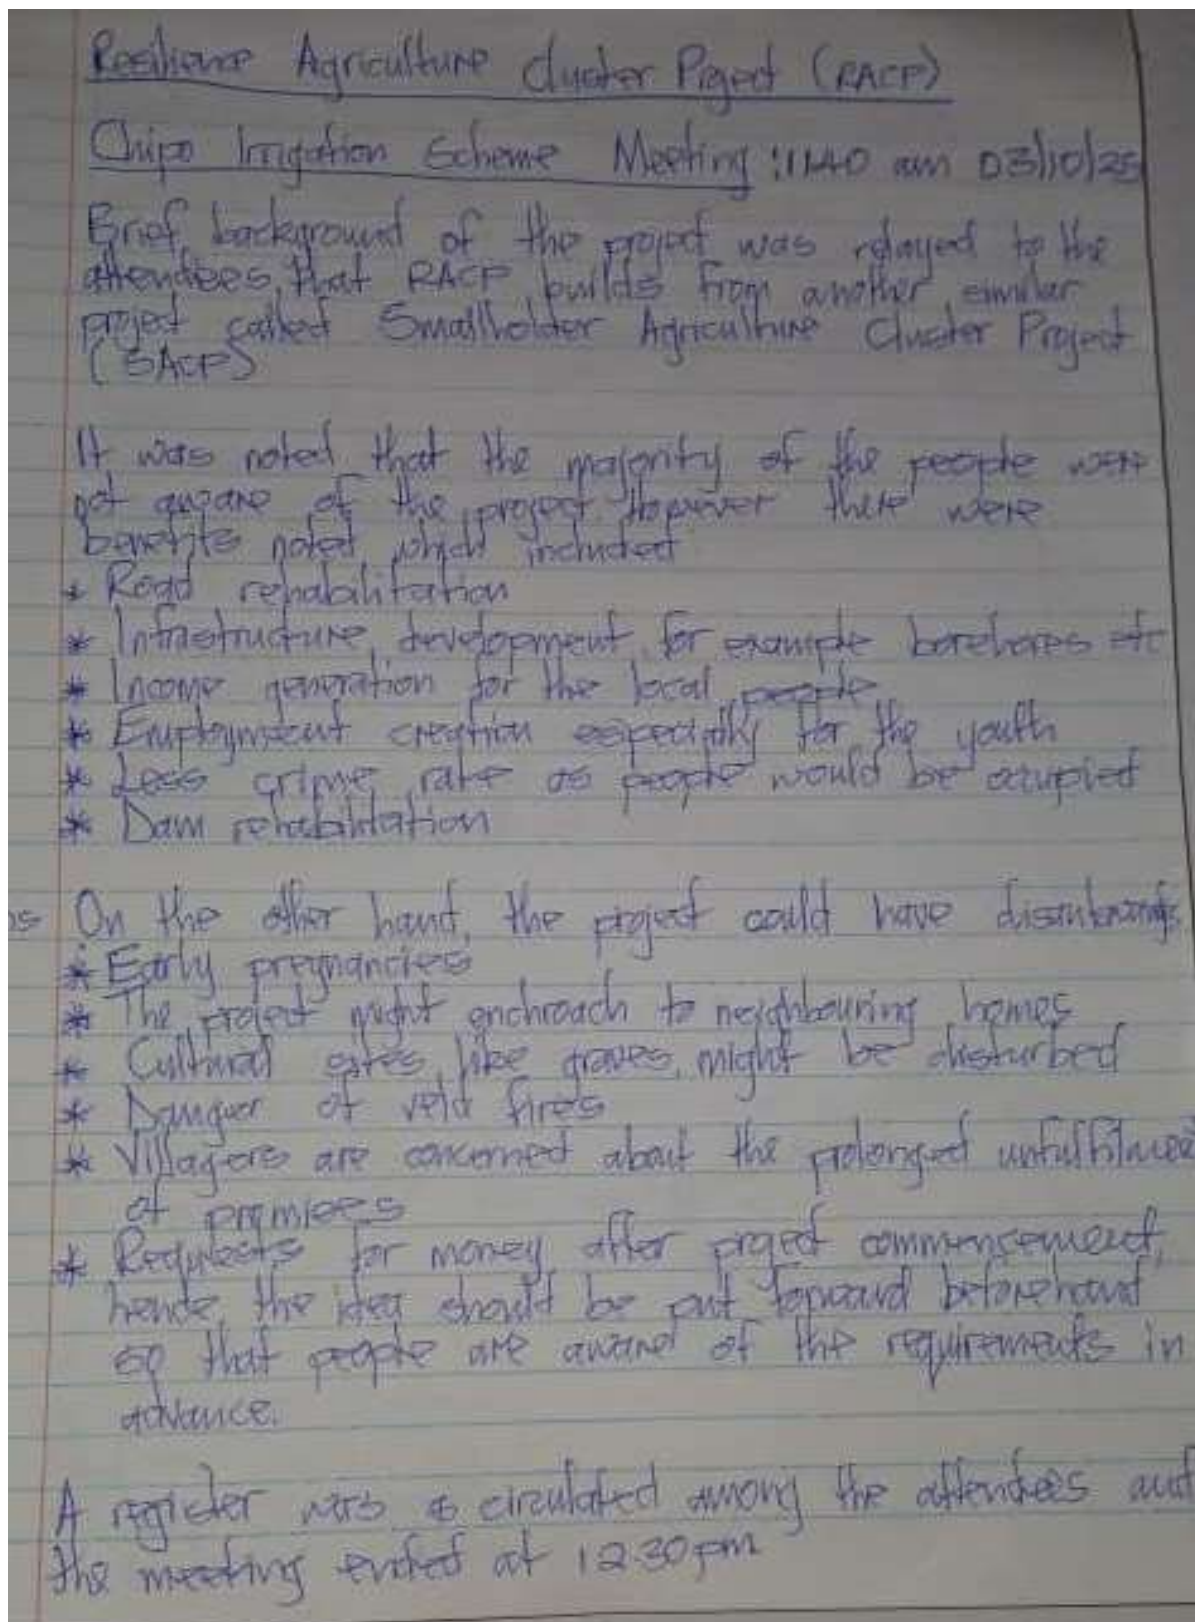 Resilience Agriculture Cluster Project (RACP)
Chipo Irrigation Scheme Meeting : 1140 am 03/10/25
Brief background of the project was relayed to the
attendees, that RACP builds from another similar
project called Smallholder Agriculture Cluster Project
(SACP)
It was noted that the majority of the people were
not aware of the project. However there were
benefits noted which included
* Road rehabalitation
* Infrastructure development for example borehores etc
* Income generation for the local people
* Employment creation especially for the youth
* Less crime rate as people would be occupied
* Dam rehabilitation
On the other hand, the project could have
* Early pregnancies
* The project might enchroach to neighbouring homes
* Cultural sites like graves, might be disturbed
* Danger of veld fires
* Villagers are concerned about the prolonged
of promises
* Requests for money after project commencement,
hence, the idea should be put forward beforehand
so that people are aware of the requirements in
advance.
A register was circulated among the attendees and
the meeting ended at 1230pm